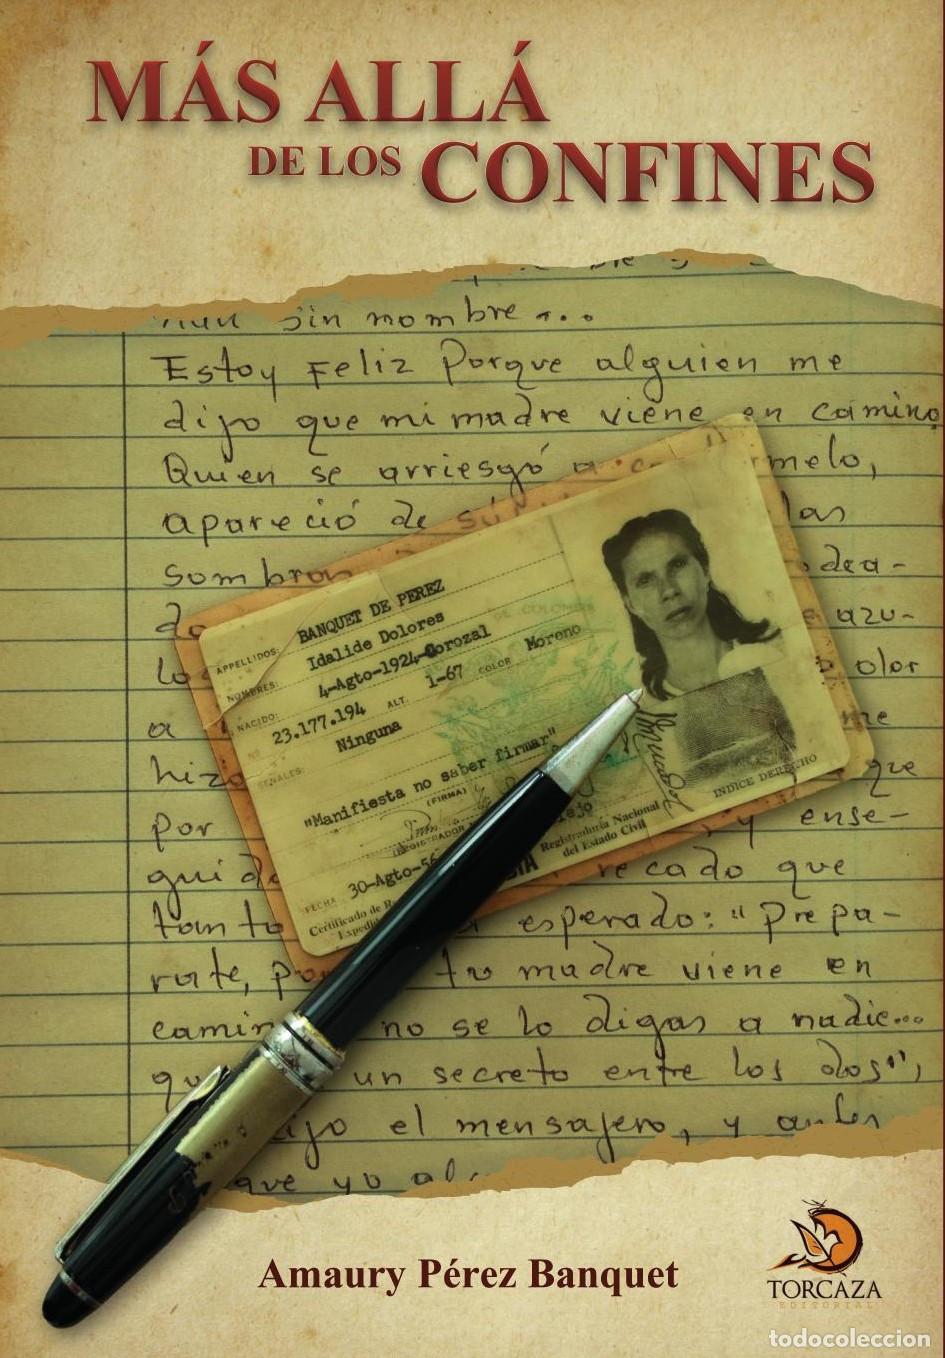 MÁS ALLÁ
DE LOS CONFINES
sin nombre...
Estoy Feliz Porque alguien me
dijo que mi madre viene en camino
Quien se arriesgó a melo,
apareció de las
sombras odea-
do azu-
lo olor
a me
hizo que
por y ense-
guida recado que
tanto esperado: "Prepa-
rate, tu madre viene en
camin no se lo digas a nadie...
un secreto entre los dos",
dijo el mensajero, y antes
que yo
APELLIDOS: BANQUET DE PEREZ
NOMBRES: Idalide Dolores
NACIDO: 4-Agto-1924-Corozal
23.177.194 ALT. 1-67 COLOR Moreno
SEÑALES: Ninguna
"Manifiesta no saber firmar"
(FIRMA)
FECHA 30-Agto-56
Registraduría Nacional
del Estado Civil
Certificado de
INDICE DERECHO
Amaury Pérez Banquet
TORCAZA
EDITORIAL
todocoleccion